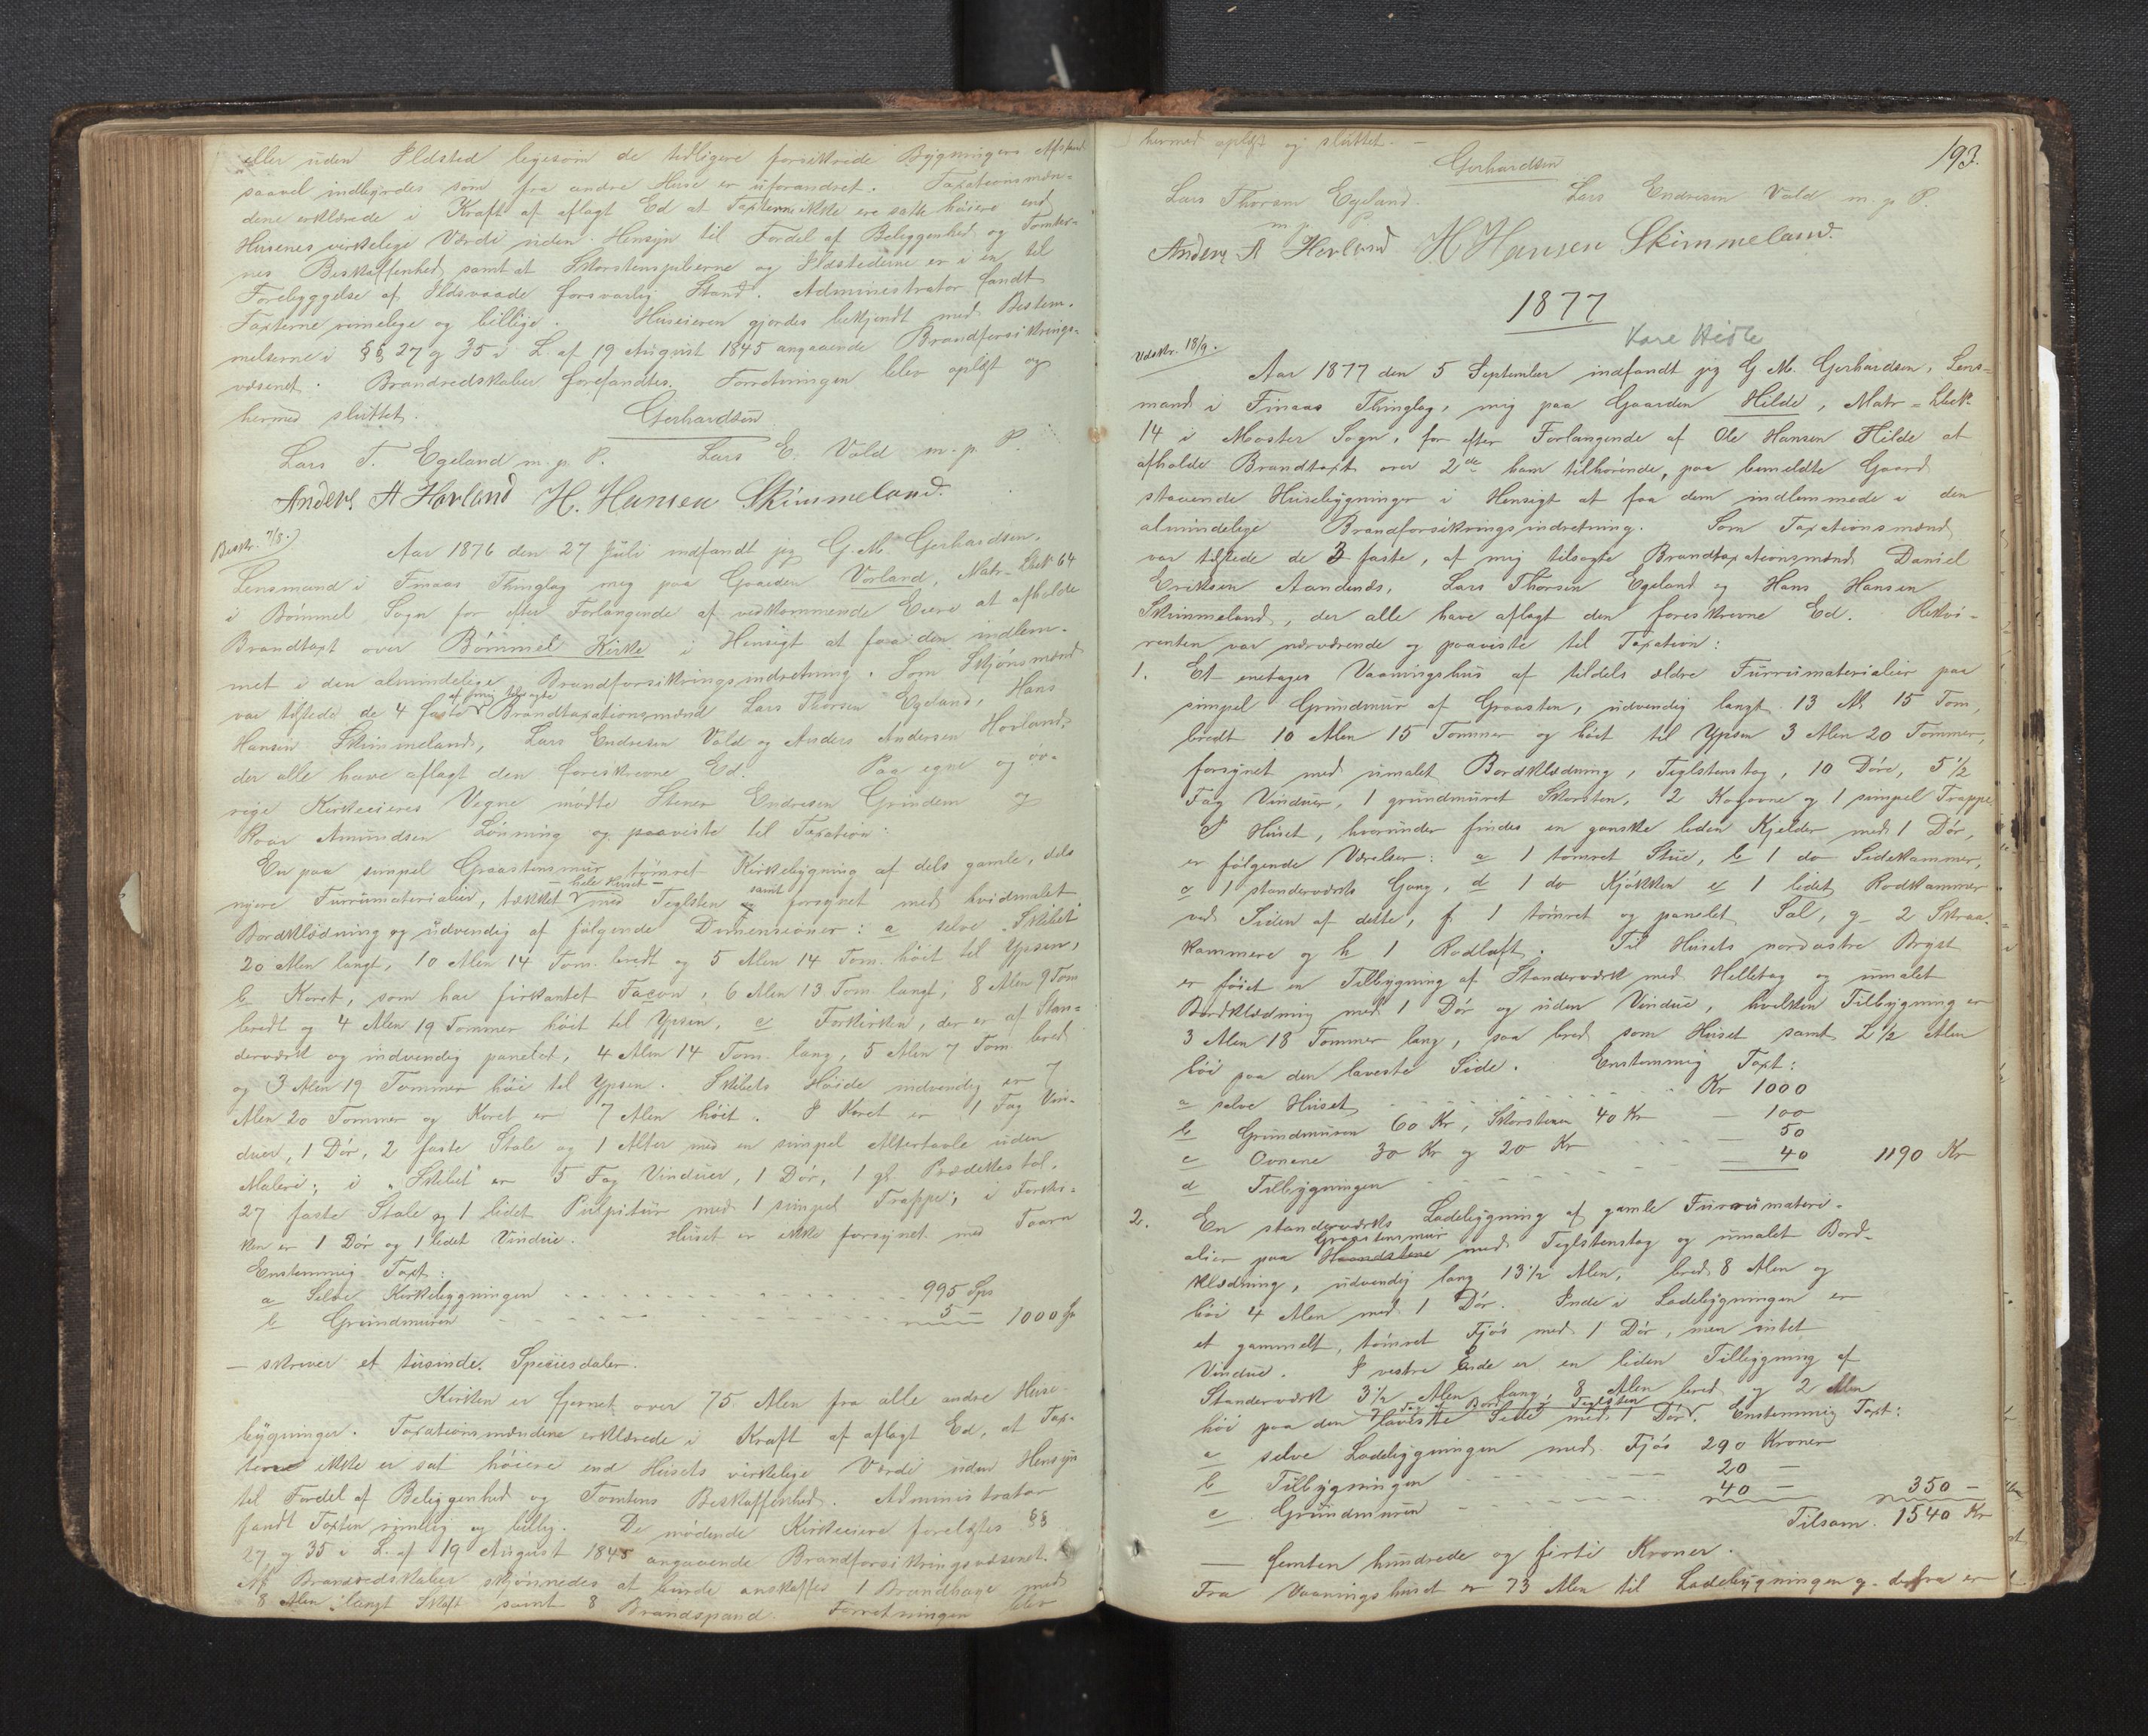 eller uden Ildsted ligesom de tidligere forsikrede Bygningers Afstand
saavel indbyrdes som fra andre Huse er uforandret. Taxationsmæn-
dene erklærede i Kraft af aflagt Ed at Taxterne ikke ere satte høiere end
Husenes virkelige Værdi uden Hensyn til Fordel af Beliggenhed og Tomter-
nes Beskaffenhed samt at Skorstenspiberne og Ildstederne er i en til
Forebyggelse af Ildsvaade forsvarlig Stand. Administrator fandt
Taxterne rimelige og billige. Huseieren gjordes bekjendt med Bestem-
melserne i §§ 27 og 35 i L. af 19 August 1845 angaaende Brandforsikrings-
væsenet. Brandredskaber forefandtes. Forretningen blev oplæst og
hermed sluttet.
Gerhardsen
Lars T. Egeland m. p. P. Lars E. Vold m. p. P.
Anders A Hovland H. Hansen Skimmeland.
Beskr. 7/8.)
Aar 1876 den 27 Juli indfandt jeg G. M. Gerhardsen,
Lensmand i Finaas Thinglag mig paa Gaarden Vorland, Matr-Løbe№ 64
i Bømmel Sogn for efter Forlangende af vedkommende Eiere at afholde
Brandtaxt over Bømmel Kirke i Hensigt at faa den indlem-
met i den almindelige Brandforsikringsindretning. Som Skjønsmænd
af mig tilsagte
var tilstede de 4 faste Brandtaxationsmænd Lars Thorsen Egeland, Hans
Hansen Skimmeland, Lars Endresen Vold og Anders Andersen Hovland,
der alle have aflagt den foreskrevne Ed. Paa egne og øv-
rige Kirkeeieres Vegne mødte Stener Endresen Grindem og
Roar Amundsen Lønning og paaviste til Taxation:
En paa simpel Graastensmur tømret Kirkebygning af dels gamle, dels
hele Huset samt
nyere Furrumaterialier, tækket med Teglsten forsynet med hvidmalet
Bordklædning og udvendig af følgende Dimensioner: a selve "Skibet"
20 Alen langt, 10 Alen 14 Tom. bredt og 5 Alen 14 Tom. høit til Ypsen,
b Koret, som har firkantet Façon, 6 Alen 13 Tom langt, 8 Alen 9 Tom
bredt og 4 Alen 19 Tommer høit til Ypsen, c Forkirken, der er af Stan-
derværk og indvendig panelet, 4 Alen 14 Tom. lang, 5 Alen 7 Tom. bred
og 3 Alen 19 Tommer høi til Ypsen. Skibets Høide indvendig er 7
Alen 20 Tommer og Koret er 7 Alen høit. I Koret er 1 Fag Vin-
duer, 1 Dør, 2 faste Stole og 1 Alter med en simpel Altertavle uden
Maleri; i "Skibet" er 5 Fag Vinduer, 1 Dør, 1 gl. Prædikestol,
27 faste Stole og 1 lidet Pulpitur med 1 simpel Trappe; i Forkir-
ken er 1 Dør og 1 lidet Vindue. Huset er ikke forsynet med Taarn
Enstemmig Taxt:
a Selve Kirkebygningen 995 Sps
b Grundmuren 5 — 1000 Sp
— skriver et tusinde Speciesdaler.
Kirken er fjernet over 75 Alen fra alle andre Huse-
bygninger. Taxationsmændene erklærede i Kraft af aflagt Ed, at Tax-
terne ikke er sat høiere end Husets virkelige Værdi uden Hensyn
til Fordel af Beliggenhed og Tomtens Beskaffenhed. Administrator
fandt Taxten rimelig og billig. De mødende Kirkeeiere forelæstes §§
27 og 35 i L. af 19 August 1845 angaaende Brandforsikringsvæsenet.
Af Brandredskaber skjønnedes at burde anskaffes 1 Brandhage med
8 Alen langt Skaft samt 8 Brandspand. Forretningen blev
193.
hermed oplæst og sluttet. —
Gerhardsen
Lars Thorsen Egeland. Lars Endresen Vold m. p. P.
m. p. P.
Anders A Hovland H Hansen Skimmeland.
1877
Kare Hilde
Udskr. 18/9.
Aar 1877 den 5 September indfandt jeg G M. Gerhardsen, Lens-
mand i Finaas Thinglag, mig paa Gaarden Hilde, Matr-Løbe№
14 i Moster Sogn, for efter Forlangende af Ole Hansen Hilde at
afholde Brandtaxt over 2de ham tilhørende, paa bemeldte Gaard
staaende Husebygninger i Hensigt at faa dem indlemmede i den
almindelige Brandforsikringsindretning. Som Taxationsmænd
var tilstede de 3 faste, af mig tilsagte Brandtaxationsmænd Daniel
Eriksen Aandenæs, Lars Thorsen Egeland og Hans Hansen
Skimmeland, der alle have aflagt den foreskrevne Ed. Rekvi-
renten var nærværende og paaviste til Taxation:
1. Et enetages Vaaningshus af tildels ældre Furrumaterialier paa
simpel Grundmur af Graasten, udvendig langt 13 Al. 15 Tom,
bredt 10 Alen 15 Tommer og høit til Ypsen 3 Alen 20 Tommer,
forsynet med umalet Bordklædning, Teglstenstag, 10 Døre, 5 1/2
Fag Vinduer, 1 grundmuret Skorsten, 2 Kogovne og 1 simpel Trappe
I Huset, hvorunder findes en ganske liden Kjelder med 1 Dør,
er følgende Værelser: a 1 tømret Stue, b 1 do Sidekammer,
c 1 standerværks Gang, d 1 do Kjøkken e 1 lidet Rodkammer
ved Siden af dette, f 1 tømret og panelet Sal, g 2 Skraa-
kammere og h 1 Rodloft. Til Husets nordøstre Bryst
er føiet en Tilbygning af Standerværk med Helletag og umalet
Bordklædning med 1 Dør og uden Vindue, hvilken Tilbygning er
3 Alen 18 Tommer lang, saa bred som Huset samt 2 1/2 Alen
høi paa den laveste Side. Enstemmig Taxt:
a selve Huset Kr 1000
b Grundmuren 60 Kr, Skorstenen 40 Kr — 100
c Ovnene 30 Kr og 20 Kr — 50
d Tilbygningen — 40 1190 Kr
2. En standerværks Ladebygning af gamle Furrumateri-
Graastensmur
alier paa Haandstene med Teglstenstag og umalet Bord-
klædning, udvendig lang 13 1/2 Alen, bred 8 Alen og
høi 4 Alen med 1 Dør. Inde i Ladebygningen er
et gammelt, tømret Fjøs med 1 Dør, men intet
Vindue. I vestre Ende er en liden Tilbygning af
Standerværk 3 1/2 Alen lang, 8 Alen bred og 2 Alen
Tag af Bord og Teglsten
høi paa den laveste Side med 1 Dør. Enstemmig Taxt:
a selve Ladebygningen med Fjøs 290 Kroner
b Tilbygningen 20 —
c Grundmuren 40 — 350 —
Tilsam. 1540 Kr
— femten hundrede og firti Kroner.
Fra Vaaningshuset er 73 Alen til Ladebygningen og derfra er